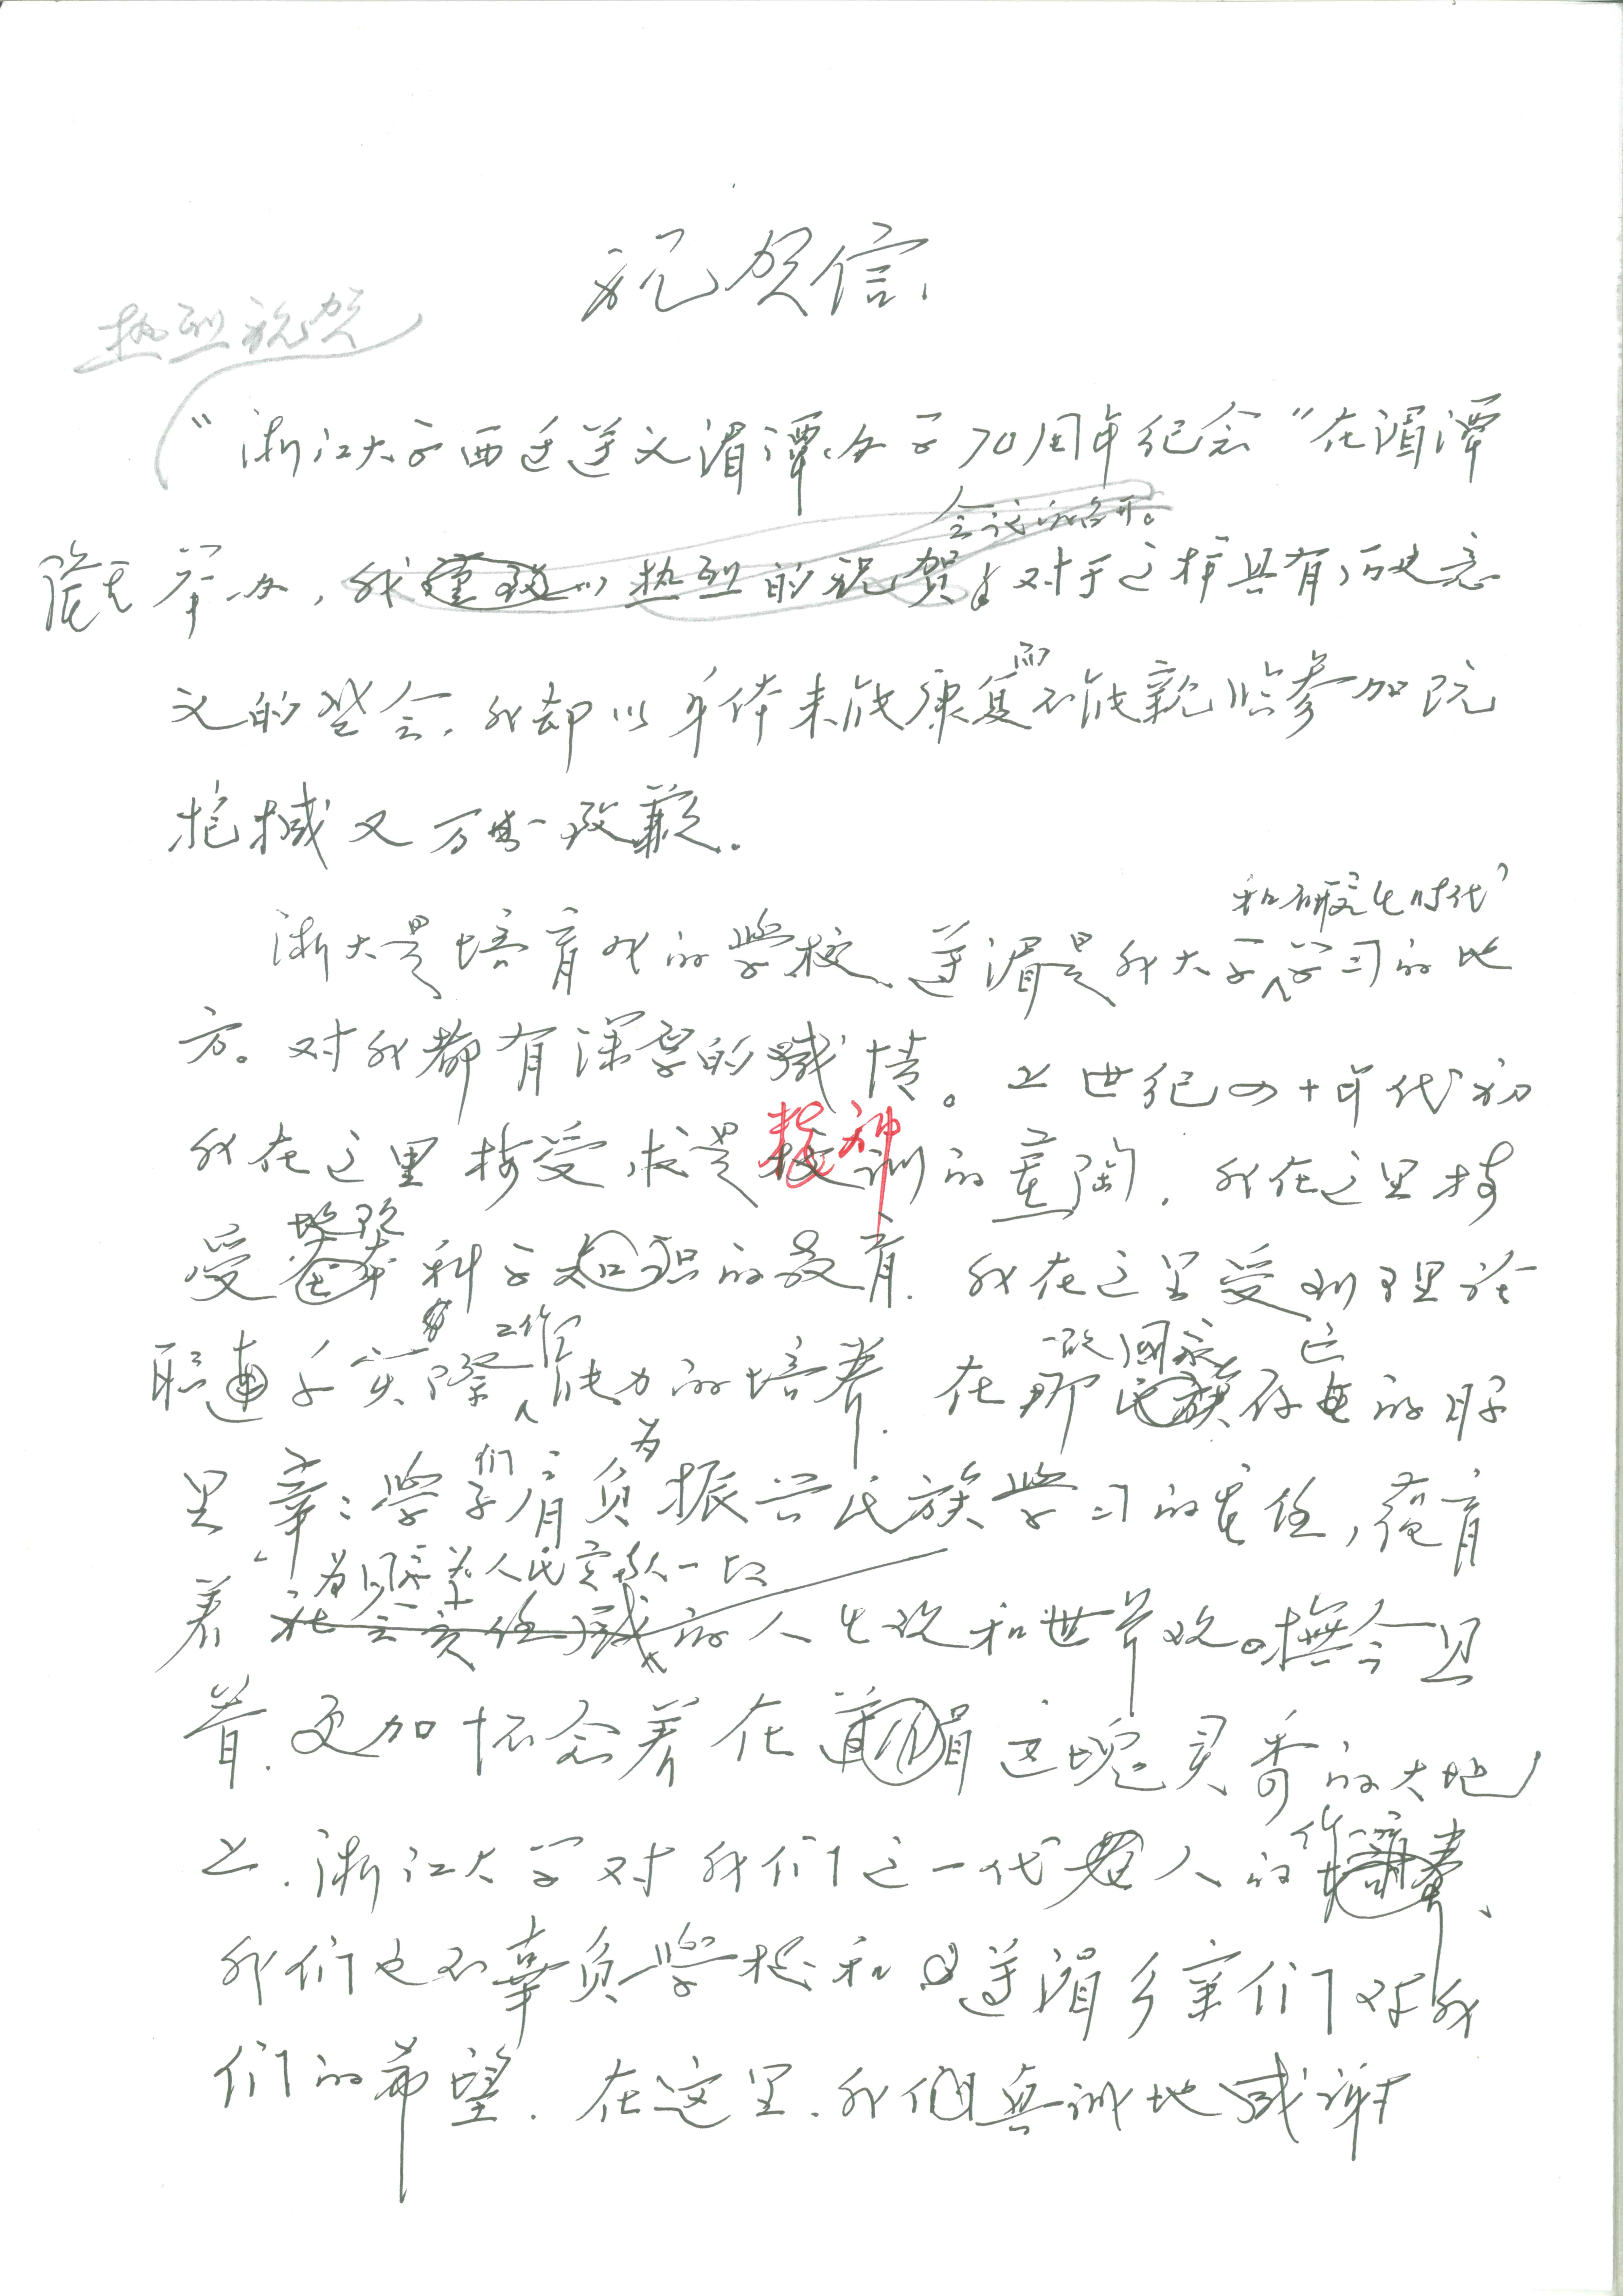 祝贺信
热烈祝贺
"浙江大学西迁遵义湄潭办学70周年纪念"在湄潭
会议的召开。
隆重举办,我谨致以热烈的祝贺,对于这样具有历史意
而
义的盛会,我却以身体未能康复不能亲临参加既
抱憾又万分致歉.
和研究生时代
浙大是培育我的学校、遵湄是我大学学习的地
方。对我都有深厚的感情。上世纪四十年代初
精神
我在这里接受求是校训的熏陶.我在这里接
坚张
受基本科学知识的教育.我在这里受到理论
工作
联连于实际能力的培养.在那民族存亡的日子
一致国家 亡
们 为
里,莘莘学子肩负振兴民族学习的责任,蕴育
为国家为人民实献一切
着社会责任感的人生观和世界观。抚今思
昔.更加怀念着在遵湄这块灵秀的大地
上.浙江大学对我们这一代人的
我们也不辜负学校和遵湄乡亲们对我
们的希望.在这里.我们真诚地感谢